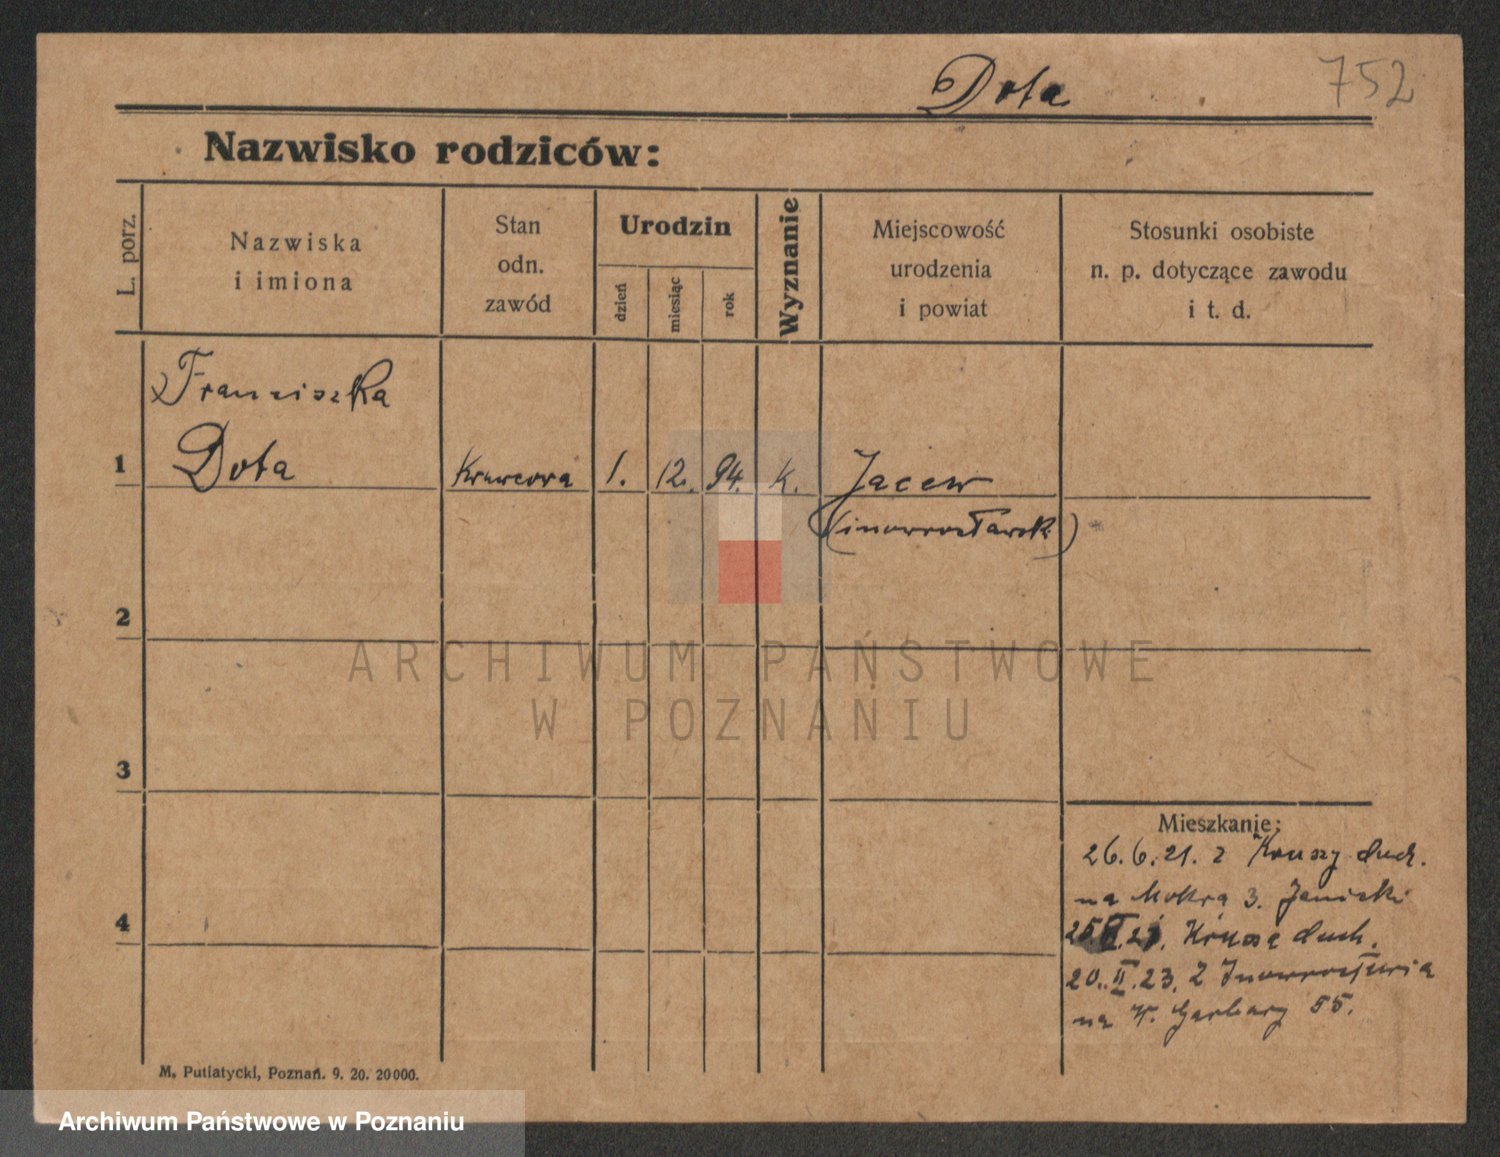 Dota
752
Nazwisko rodziców:
L. porz.
Nazwiska
i imiona
Stan
odn.
zawód
Urodzin
dzień
miesiąc
rok
Wyznanie
Miejscowość
urodzenia
i powiat
Stosunki osobiste
n. p. dotyczące zawodu
i t. d.
Franciszka
1 Dota Krawcowa 1. 12. 94. K. Jacew
(inowrocławski)
2
ARCHIWUM PAŃSTWOWE
W POZNANIU
3
Mieszkanie:
26.6.21. z Kruszy duch.
na Mokra 3. Janicki
4
21. Krusza duch.
20.II.23. z Inowrocławia
na W. Garbary 55.
M. Putiatycki, Poznań. 9. 20. 20000.
Archiwum Państwowe w Poznaniu